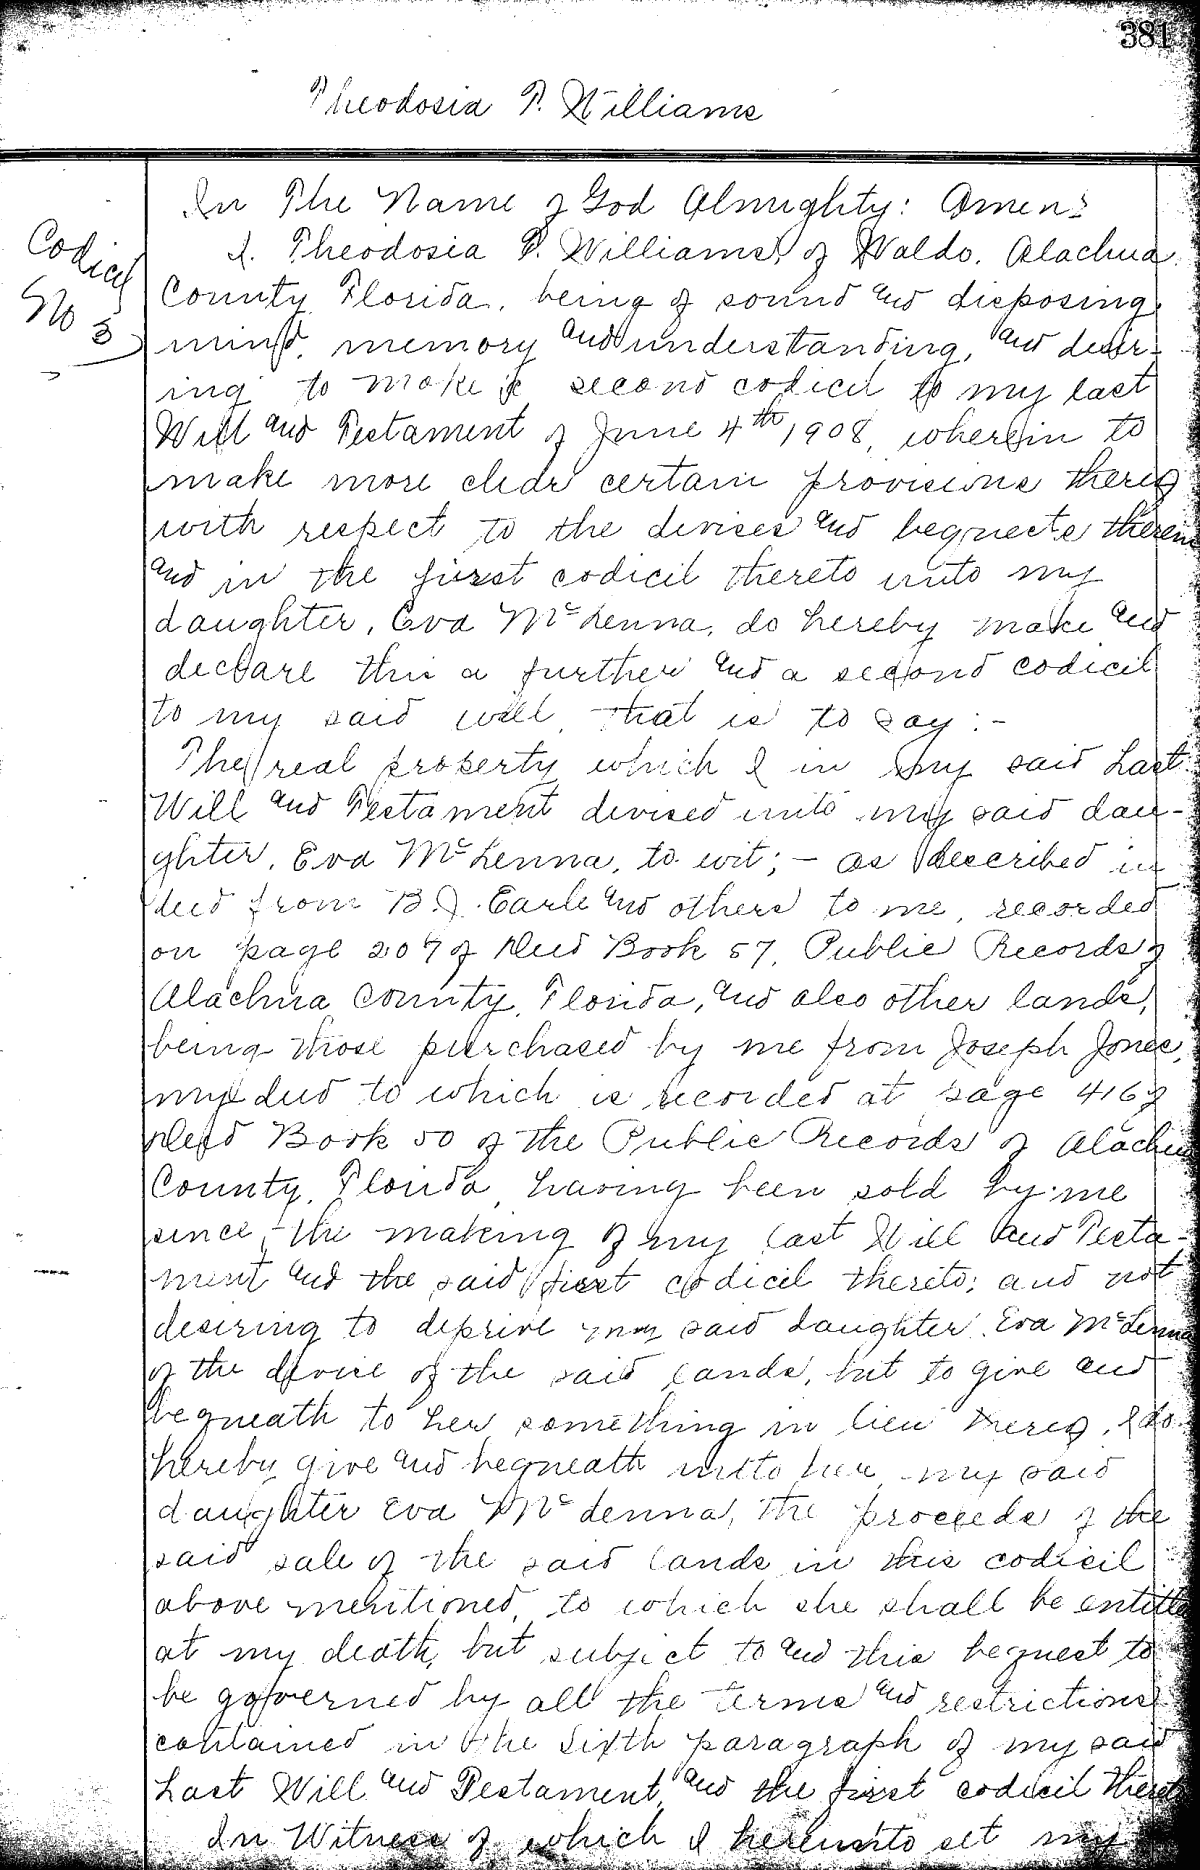 381
Theodosia P. Williams
In The Name of God Almighty: Amen:
Codicil
No 3
I. Theodosia P. Williams, of Waldo, Alachua
County, Florida, being of sound and disposing
mind, memory and understanding, and desir-
ing to make a second codicil to my last
Will and Testament of June 4th, 1908, wherein to
make more clear certain provisions thereof
with respect to the devises and bequests therein
and in the first codicil thereto unto my
daughter, Eva McLenna, do hereby make and
declare this a further and a second codicil
to my said will, that is to say:-
The real property which I in my said Last
Will and Testament devised unto my said dau-
ghter, Eva McLenna, to wit; - as described in
deed from B.J. Earle and others to me, recorded
on page 207 of Deed Book 57, Public Records of
Alachua County, Florida, and also other lands,
being those purchased by me from Joseph Jones,
my deed to which is recorded at page 416 of
Deed Book 50 of the Public Records of Alachua
County, Florida, having been sold by me
since the making of my last Will and Testa-
ment and the said first codicil thereto; and not
desiring to deprive my said daughter, Eva McLenna
of the devise of the said lands, but to give and
bequeath to her something in lieu thereof, I do
hereby give and bequeath unto her, my said
daughter Eva McLenna, the proceeds of the
said sale of the said lands in this codicil
above mentioned, to which she shall be entitled
at my death, but subject to and this bequest to
be governed by all the terms and restrictions
contained in the Sixth paragraph of my said
Last Will and Testament, and the first codicil thereto
In Witness of which I hereunto set my